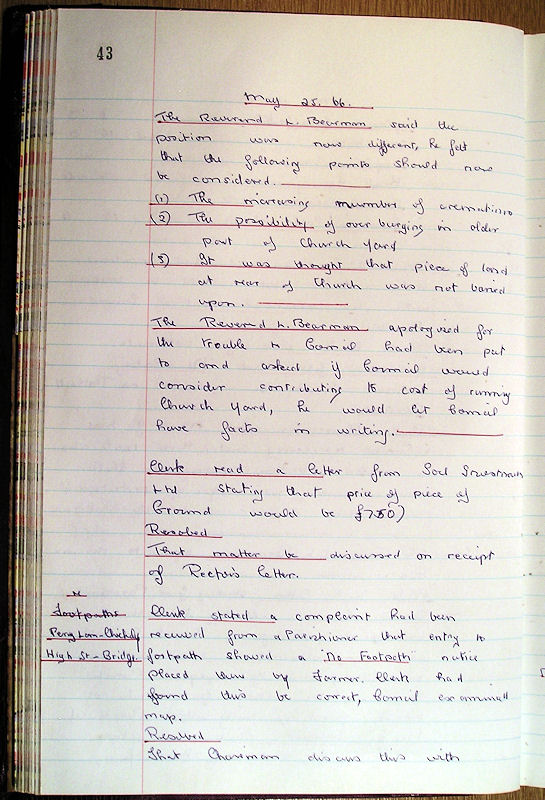 43
May 25. 66.
The Reverend L. Bearman said the
position was now different, he felt
that the following points should now
be considered.
(1) The increasing number of cremations
(2) The possibility of over burying in older
part of Church Yard
(3) It was thought that piece of land
at rear of Church was not buried
upon.
The Reverend L. Bearman apologised for
the trouble the Council had been put
to and asked if Council would
consider contributing to cost of running
Church Yard, he would let Council
have facts in writing.
Clerk read a letter from Investments
Ltd stating that price of piece of
Ground would be £750)
Resolved
That matter be discussed on receipt
of Rectors letter.
Footpaths
High St - Bridge.
Clerk stated a complaint had been
received from a Parishioner that entry to
footpath showed a "No Footpath" notice
placed there by Farmer. Clerk had
found this be correct, Council examined
map.
Resolved
That Chairman discuss this with